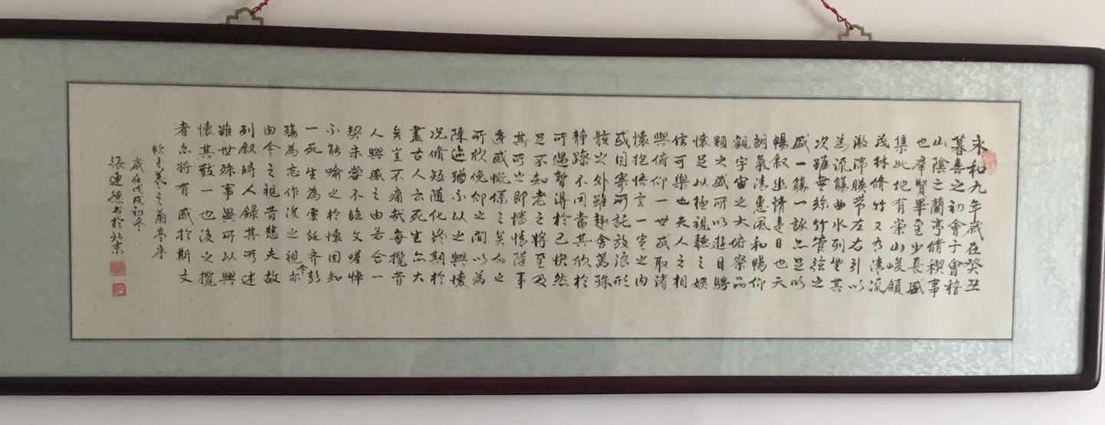 永和九年歲在癸丑
暮春之初會于會稽
山陰之蘭亭脩禊事
也群賢畢至少長咸
集此地有崇山峻領
茂林脩竹又有清流
激湍暎帶左右引以
為流觴曲水列坐其
次雖無絲竹管弦之
盛一觴一詠亦足以
暢叙幽情是日也天
朗氣清惠風和暢仰
觀宇宙之大俯察品
類之盛所以遊目騁
懷足以極視聽之娛
信可樂也夫人之相
與俯仰一世或取諸
懷抱悟言一室之内
或因寄所託放浪形
骸之外雖趣舍萬殊
静躁不同當其欣於
所遇暫得於己快然
足不知老之將至及
其所之既惓情隨事
遷感慨係之矣向之
所欣俛仰之間以為
陳迹猶不以之興懷
況脩短隨化終期於
盡古人云死生亦大
矣豈不痛哉每攬昔
人興感之由若合一
契未嘗不臨文嗟悼
不能喻之於懷固知
一死生為虛誕齊彭
殤為妄作後之視今亦
由今之視昔悲夫故
列叙時人錄其所述
雖世殊事異所以興
懷其致一也後之攬
者亦將有感於斯文
臨王羲之蘭亭序
歲在戊戌初冬
張連書於北京